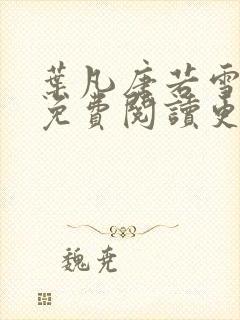 葉凡唐若雪
免費閱讀更
魏尭